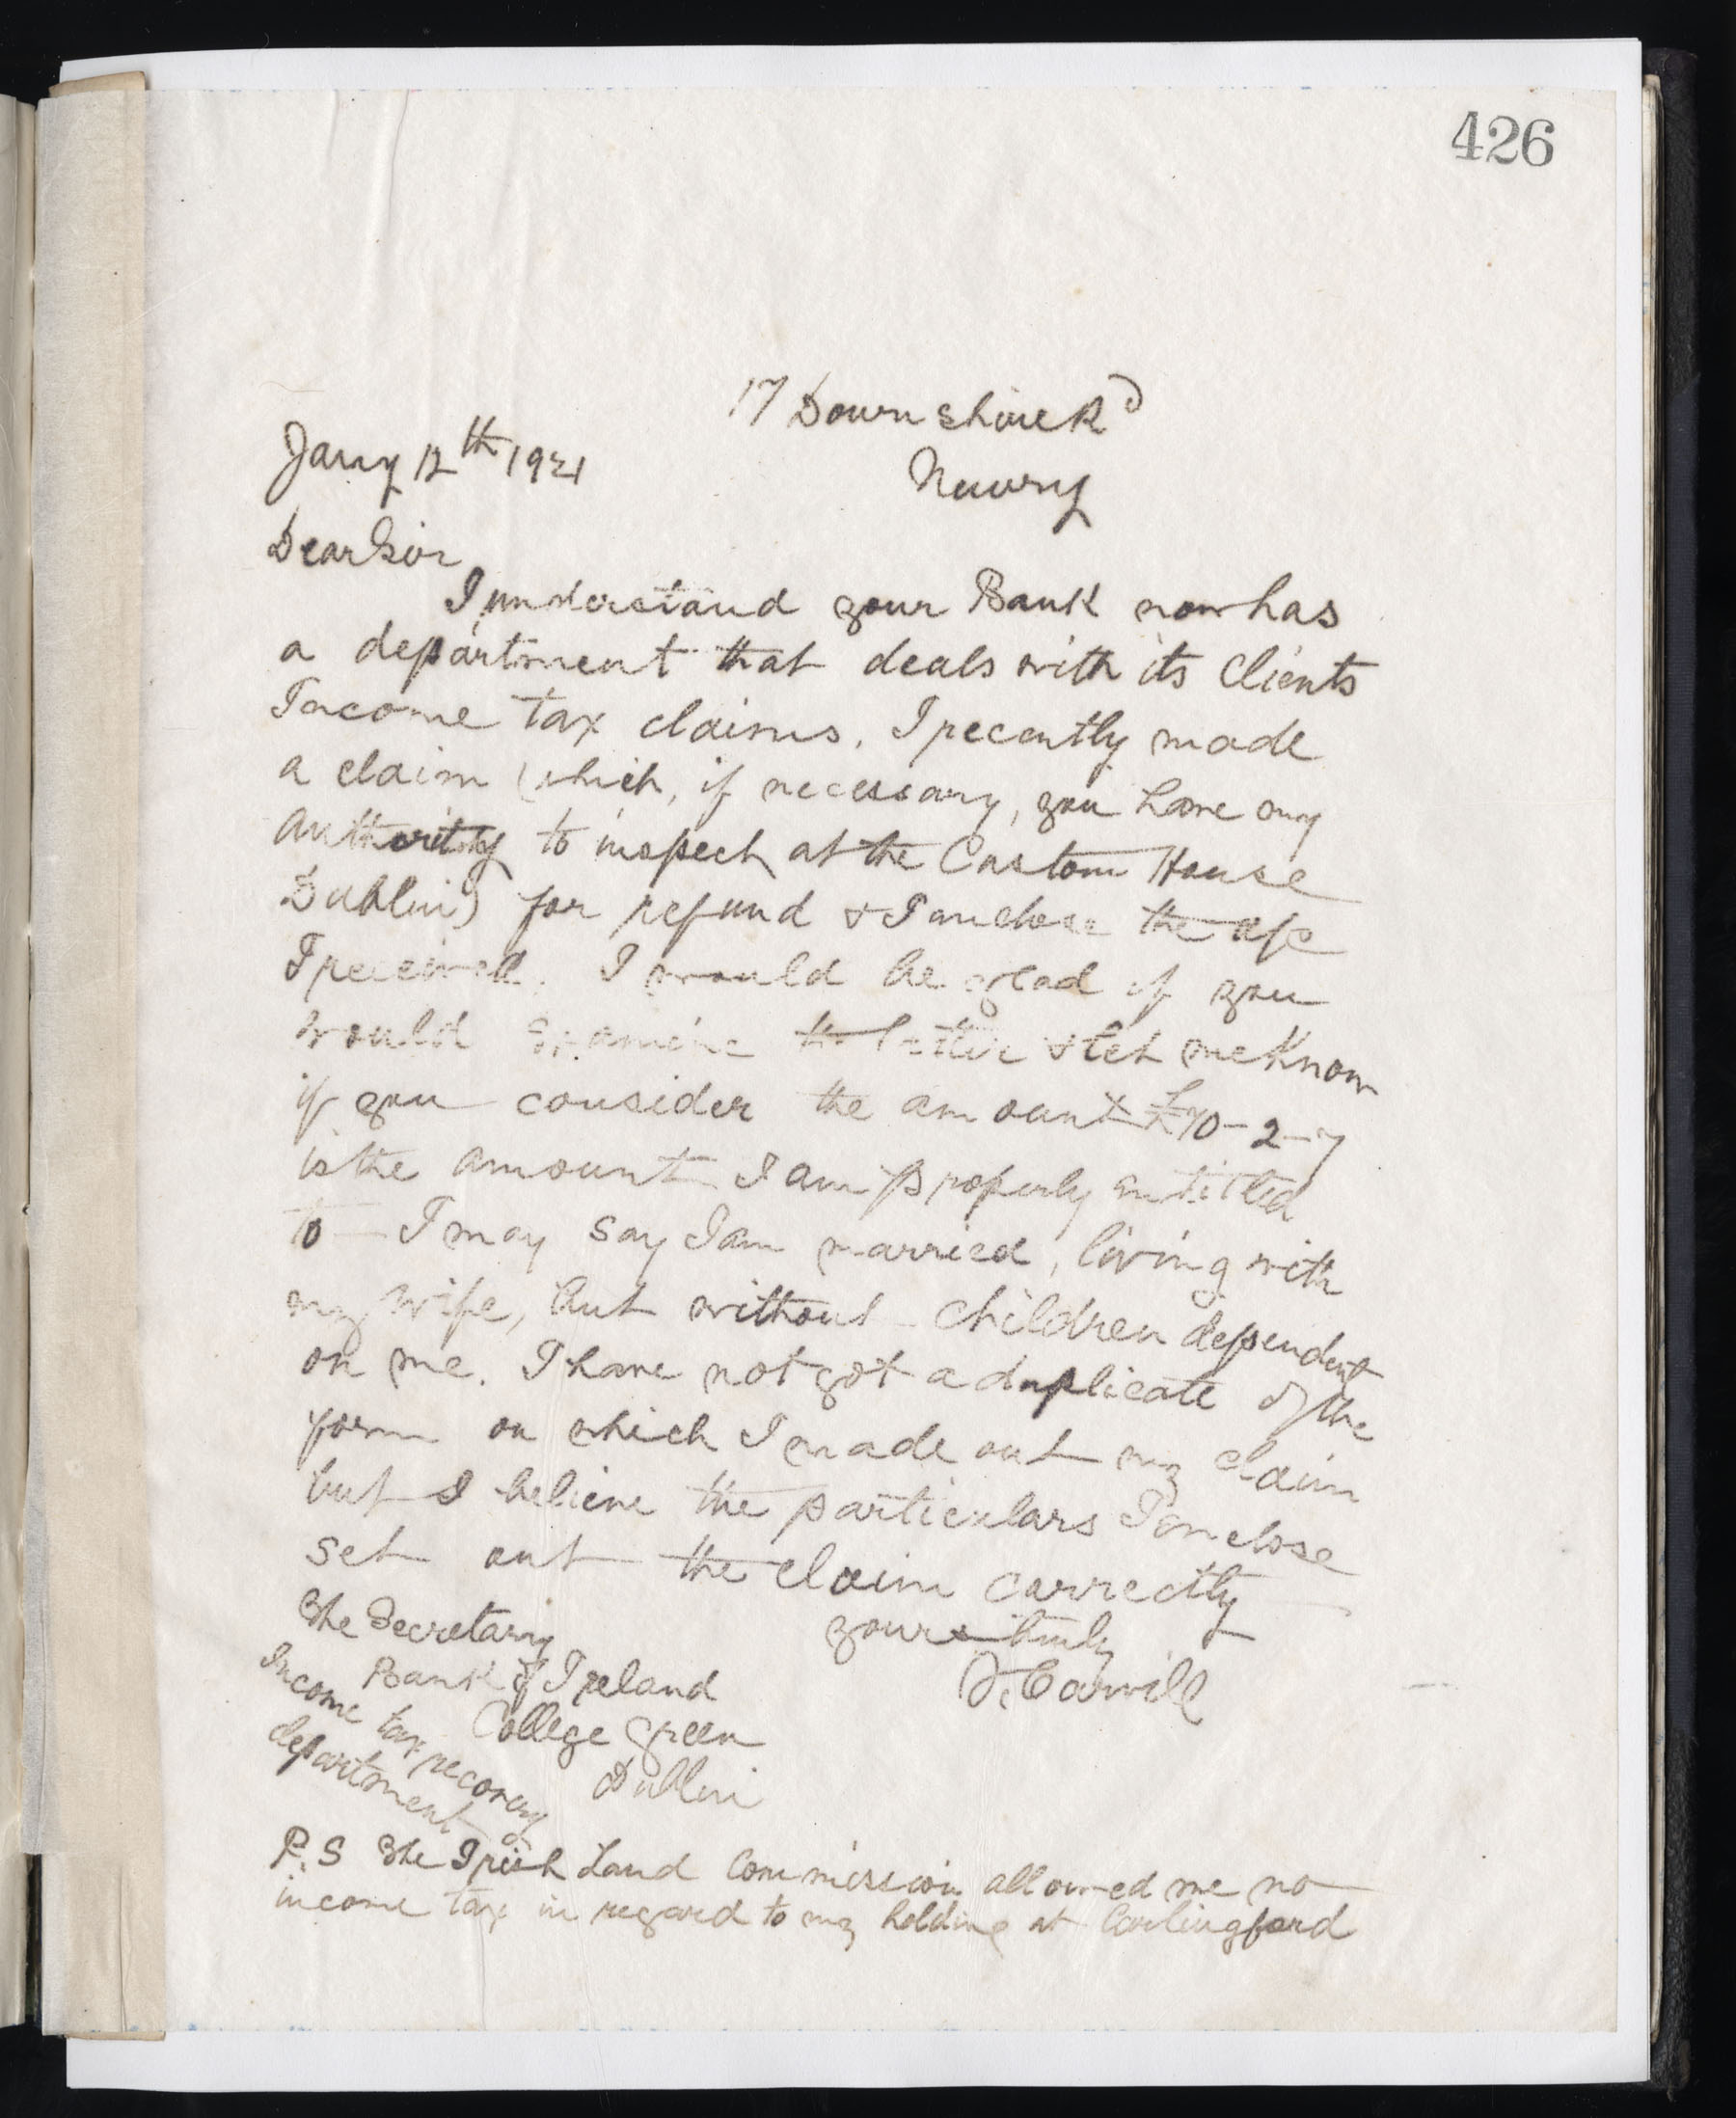 426
17 Downshire Rd
Jany 12th 1921
Newry
Dear Sir
I understand your Bank now has
a department that deals with its clients
Income tax claims. I recently made
a claim (which, if necessary, you have my
authority to inspect at the Custom House
Dublin) for refund & I enclose the
I received. I would be glad if you
would examine the latter & let me Know
if you consider the amount £70-2-7
is the amount I am properly entitled
to - I may say I am married, living with
my wife, but without children dependent
on me. I have not got a duplicate of the
form on which I made out my claim
but I believe the particulars I enclose
set out the claim correctly
yours truly
The Secretary
Bank of Ireland
College Green
Dublin
Income tax recovery
department
F. Carvill
P.S The Irish Land Commission allowed me no
income tax in regard to my holding at Carlingford